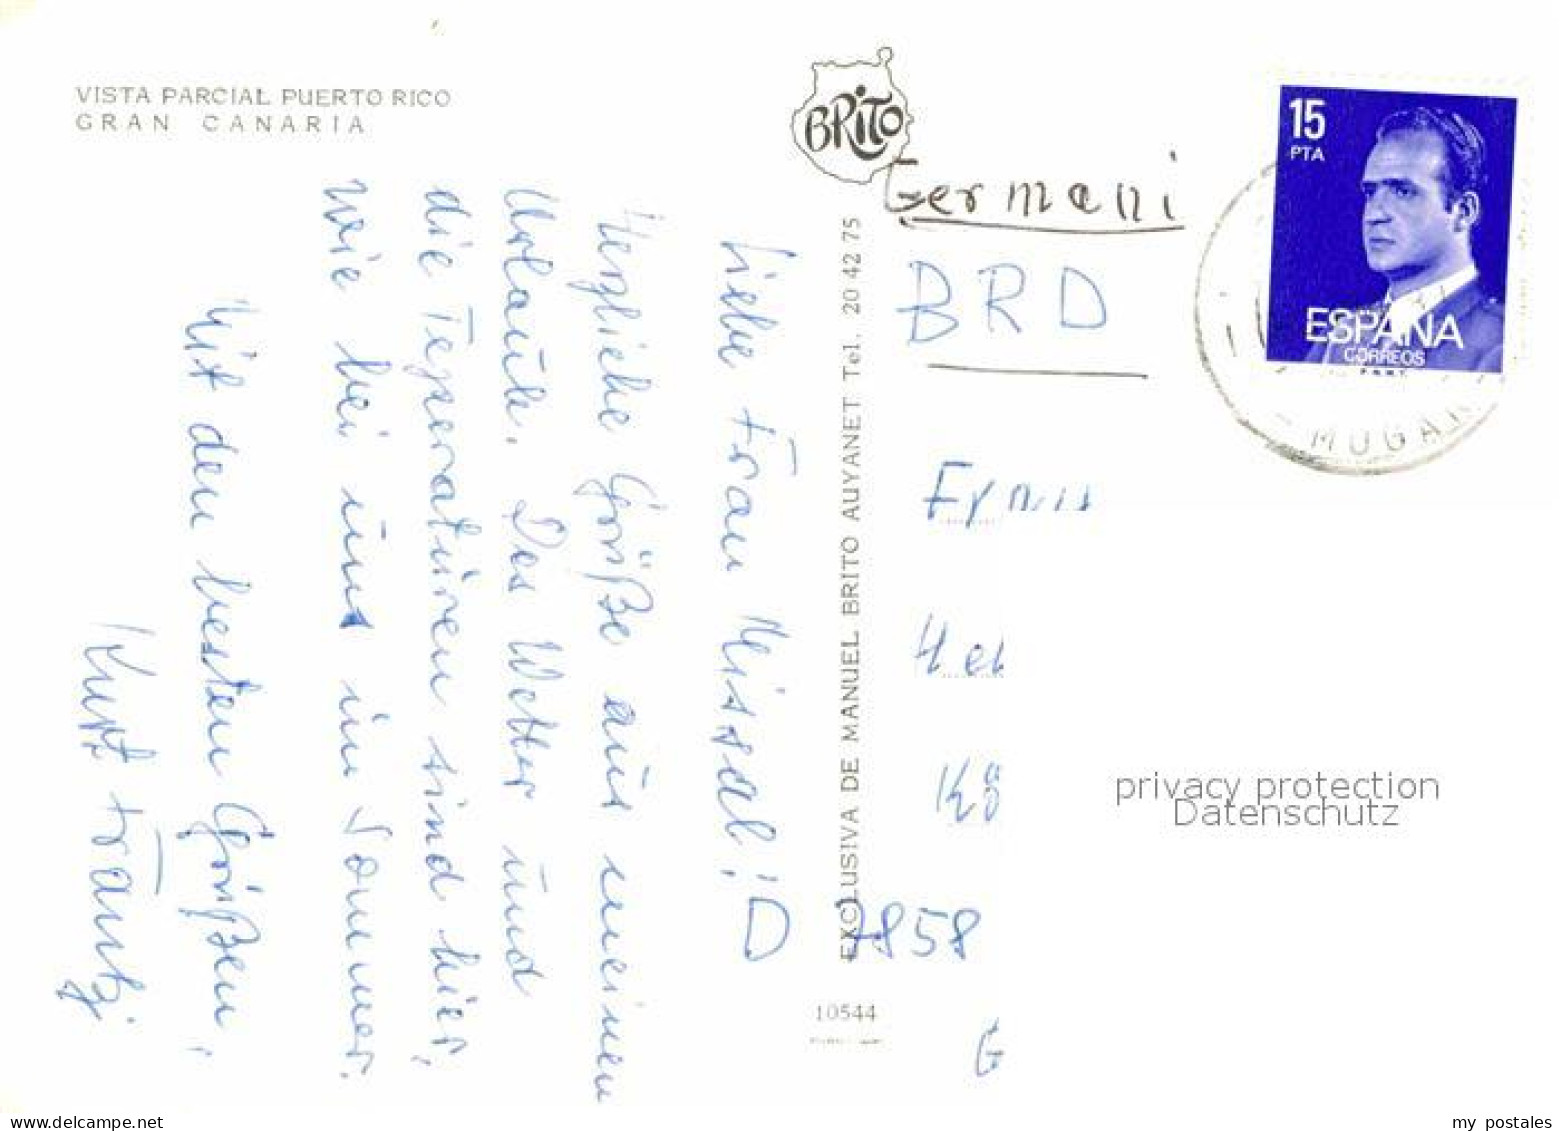 VISTA PARCIAL PUERTO RICO
GRAN CANARIA
BRITO
15
PTA
ESPAÑA
CORREOS
F.N.M.T.
MOGAN
Germani
BRD
EXCLUSIVA DE MANUEL BRITO AUYANET Tel. 20 42 75
Liebe Frau Missal!
Herzliche Grüße aus meinem
Urlaub. Das Wetter und
die Temperaturen sind hier,
wie bei uns im Sommer.
Mit den besten Grüßen,
Kurt Frantz
D
7858
10544
privacy protection
Datenschutz
delcampe.net
my_postales